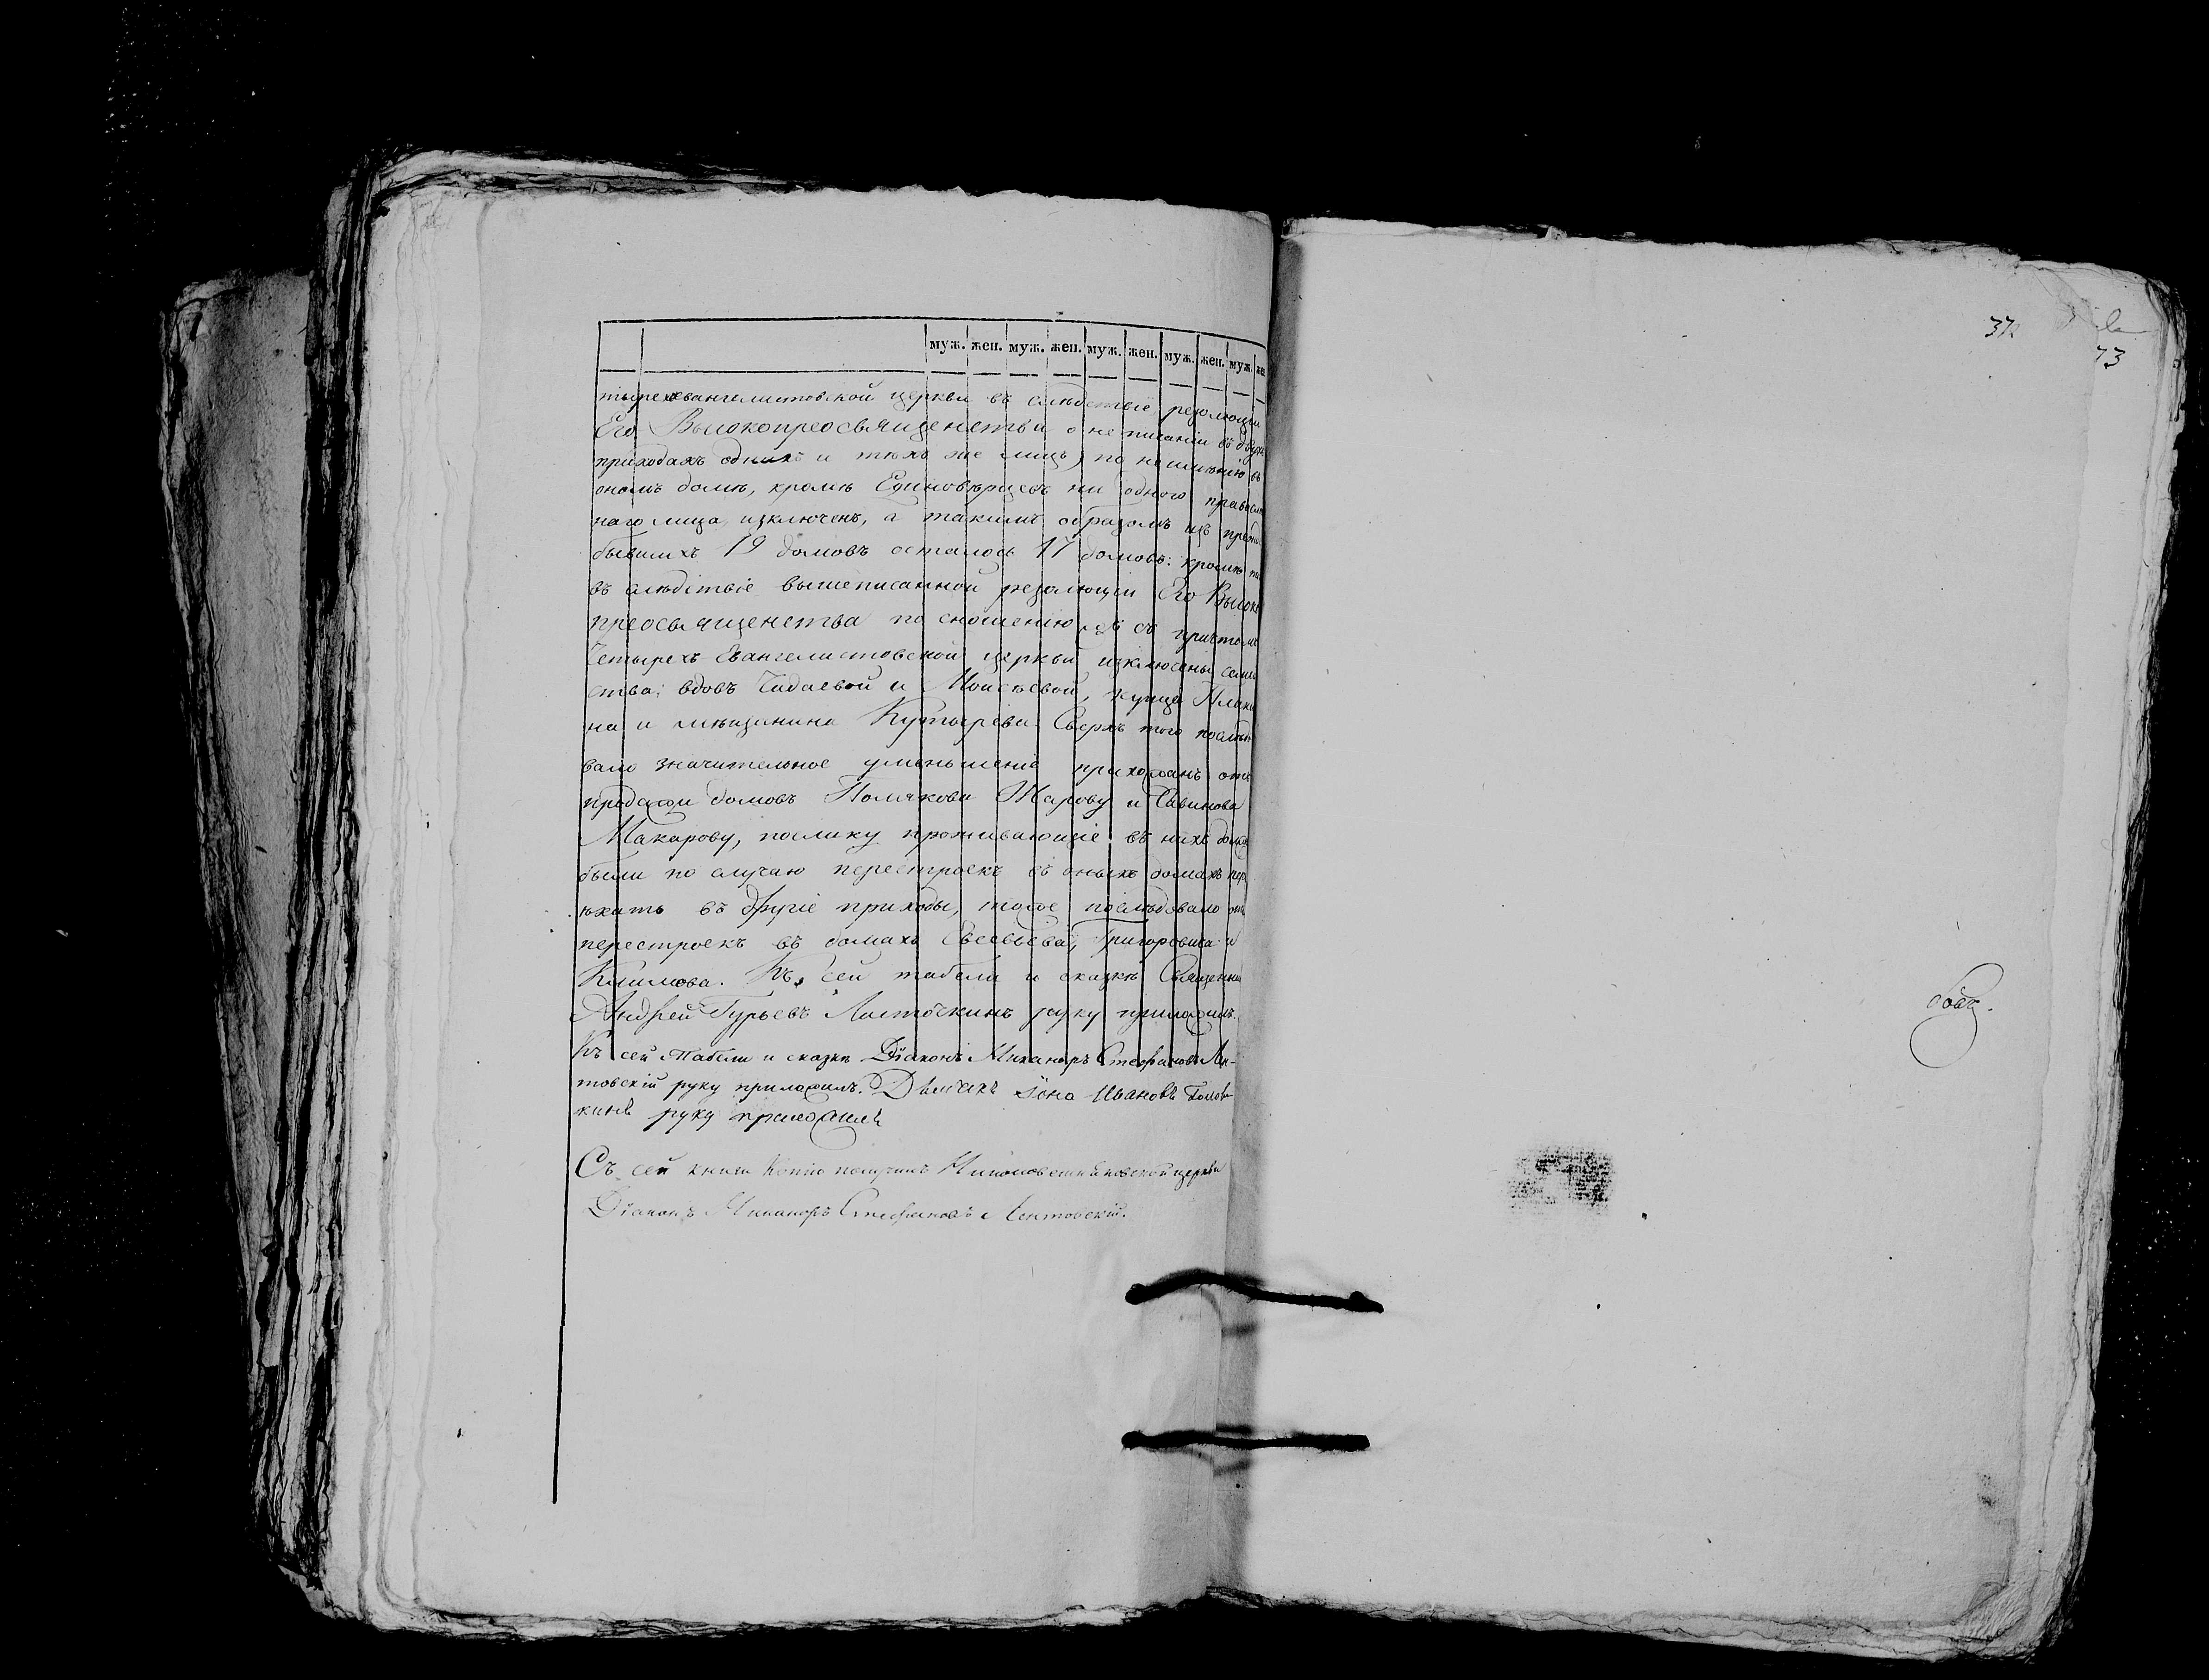 муж. жен. муж. жен. муж. жен. муж. жен. муж. жен.
тырехевангелистовской церкви въ слѣдствіе резолюціи
Его Высокопреосвященства о не писаніи въ двухъ
приходахъ однихъ и тѣхъ же лицъ, по неимѣнію въ
ономъ домѣ, кромѣ Единовѣрцевъ ни одного правосла
наго лица, изключенъ, а такимъ образомъ изъ прежде
бывшихъ 19 домовъ осталось 17 домовъ: кромѣ то
въ слѣдствіе вышеписанной резолюціи Его Высоко
преосвященства по сношенію съ причтомъ
Четырехъ-Евангелистовской церкви изключены семи
ства: вдовъ Чадаевой и Моисѣевой, купца Плаки
на и мѣщанина Кутырева. Сверхъ того послѣдо
вало значительное уменьшеніе прихожанъ отъ
продажи домовъ Полякова Жарову и Савинова
Макарову, поелику проживающіе въ нихъ должны
были по случаю перестроекъ въ оныхъ домахъ пере
ѣхать въ другіе приходы, тоже послѣдовало отъ
перестроекъ въ домахъ Евсевьева, Григоровича и
Климова. Къ сей табели и сказкѣ Священникъ
Андрей Гурьевъ Ласточкинъ руку приложилъ.
Къ сей табели и сказкѣ Діаконъ Никаноръ Стефановъ Лен-
товскій руку приложилъ. Дьячекъ Іона Ивановъ Голов
кинъ руку приложилъ
Съ сей книги копію получилъ церкви
Діаконъ Никаноръ Стефановъ Лентовскій.
373
73